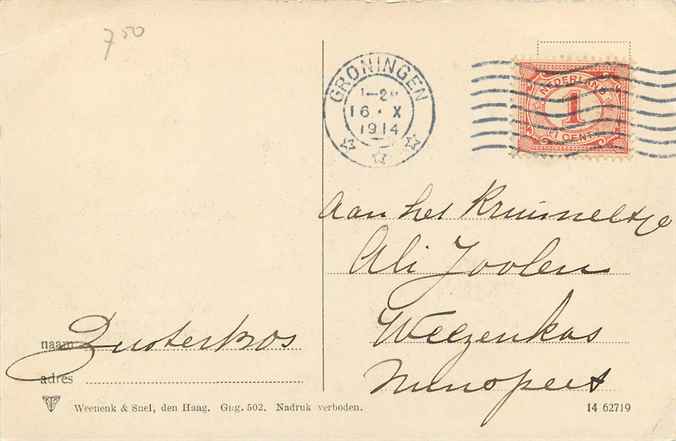 7 50
GRONINGEN
1-2
16 · X
1914
NEDERLAND
1
1 CENT
Aan het Kruimeltje
Ali Joolen
Weezenkas
Nunspeet
naam Zusterkos
adres
Weenenk & Snel, den Haag. Gng. 502. Nadruk verboden.
14 62719